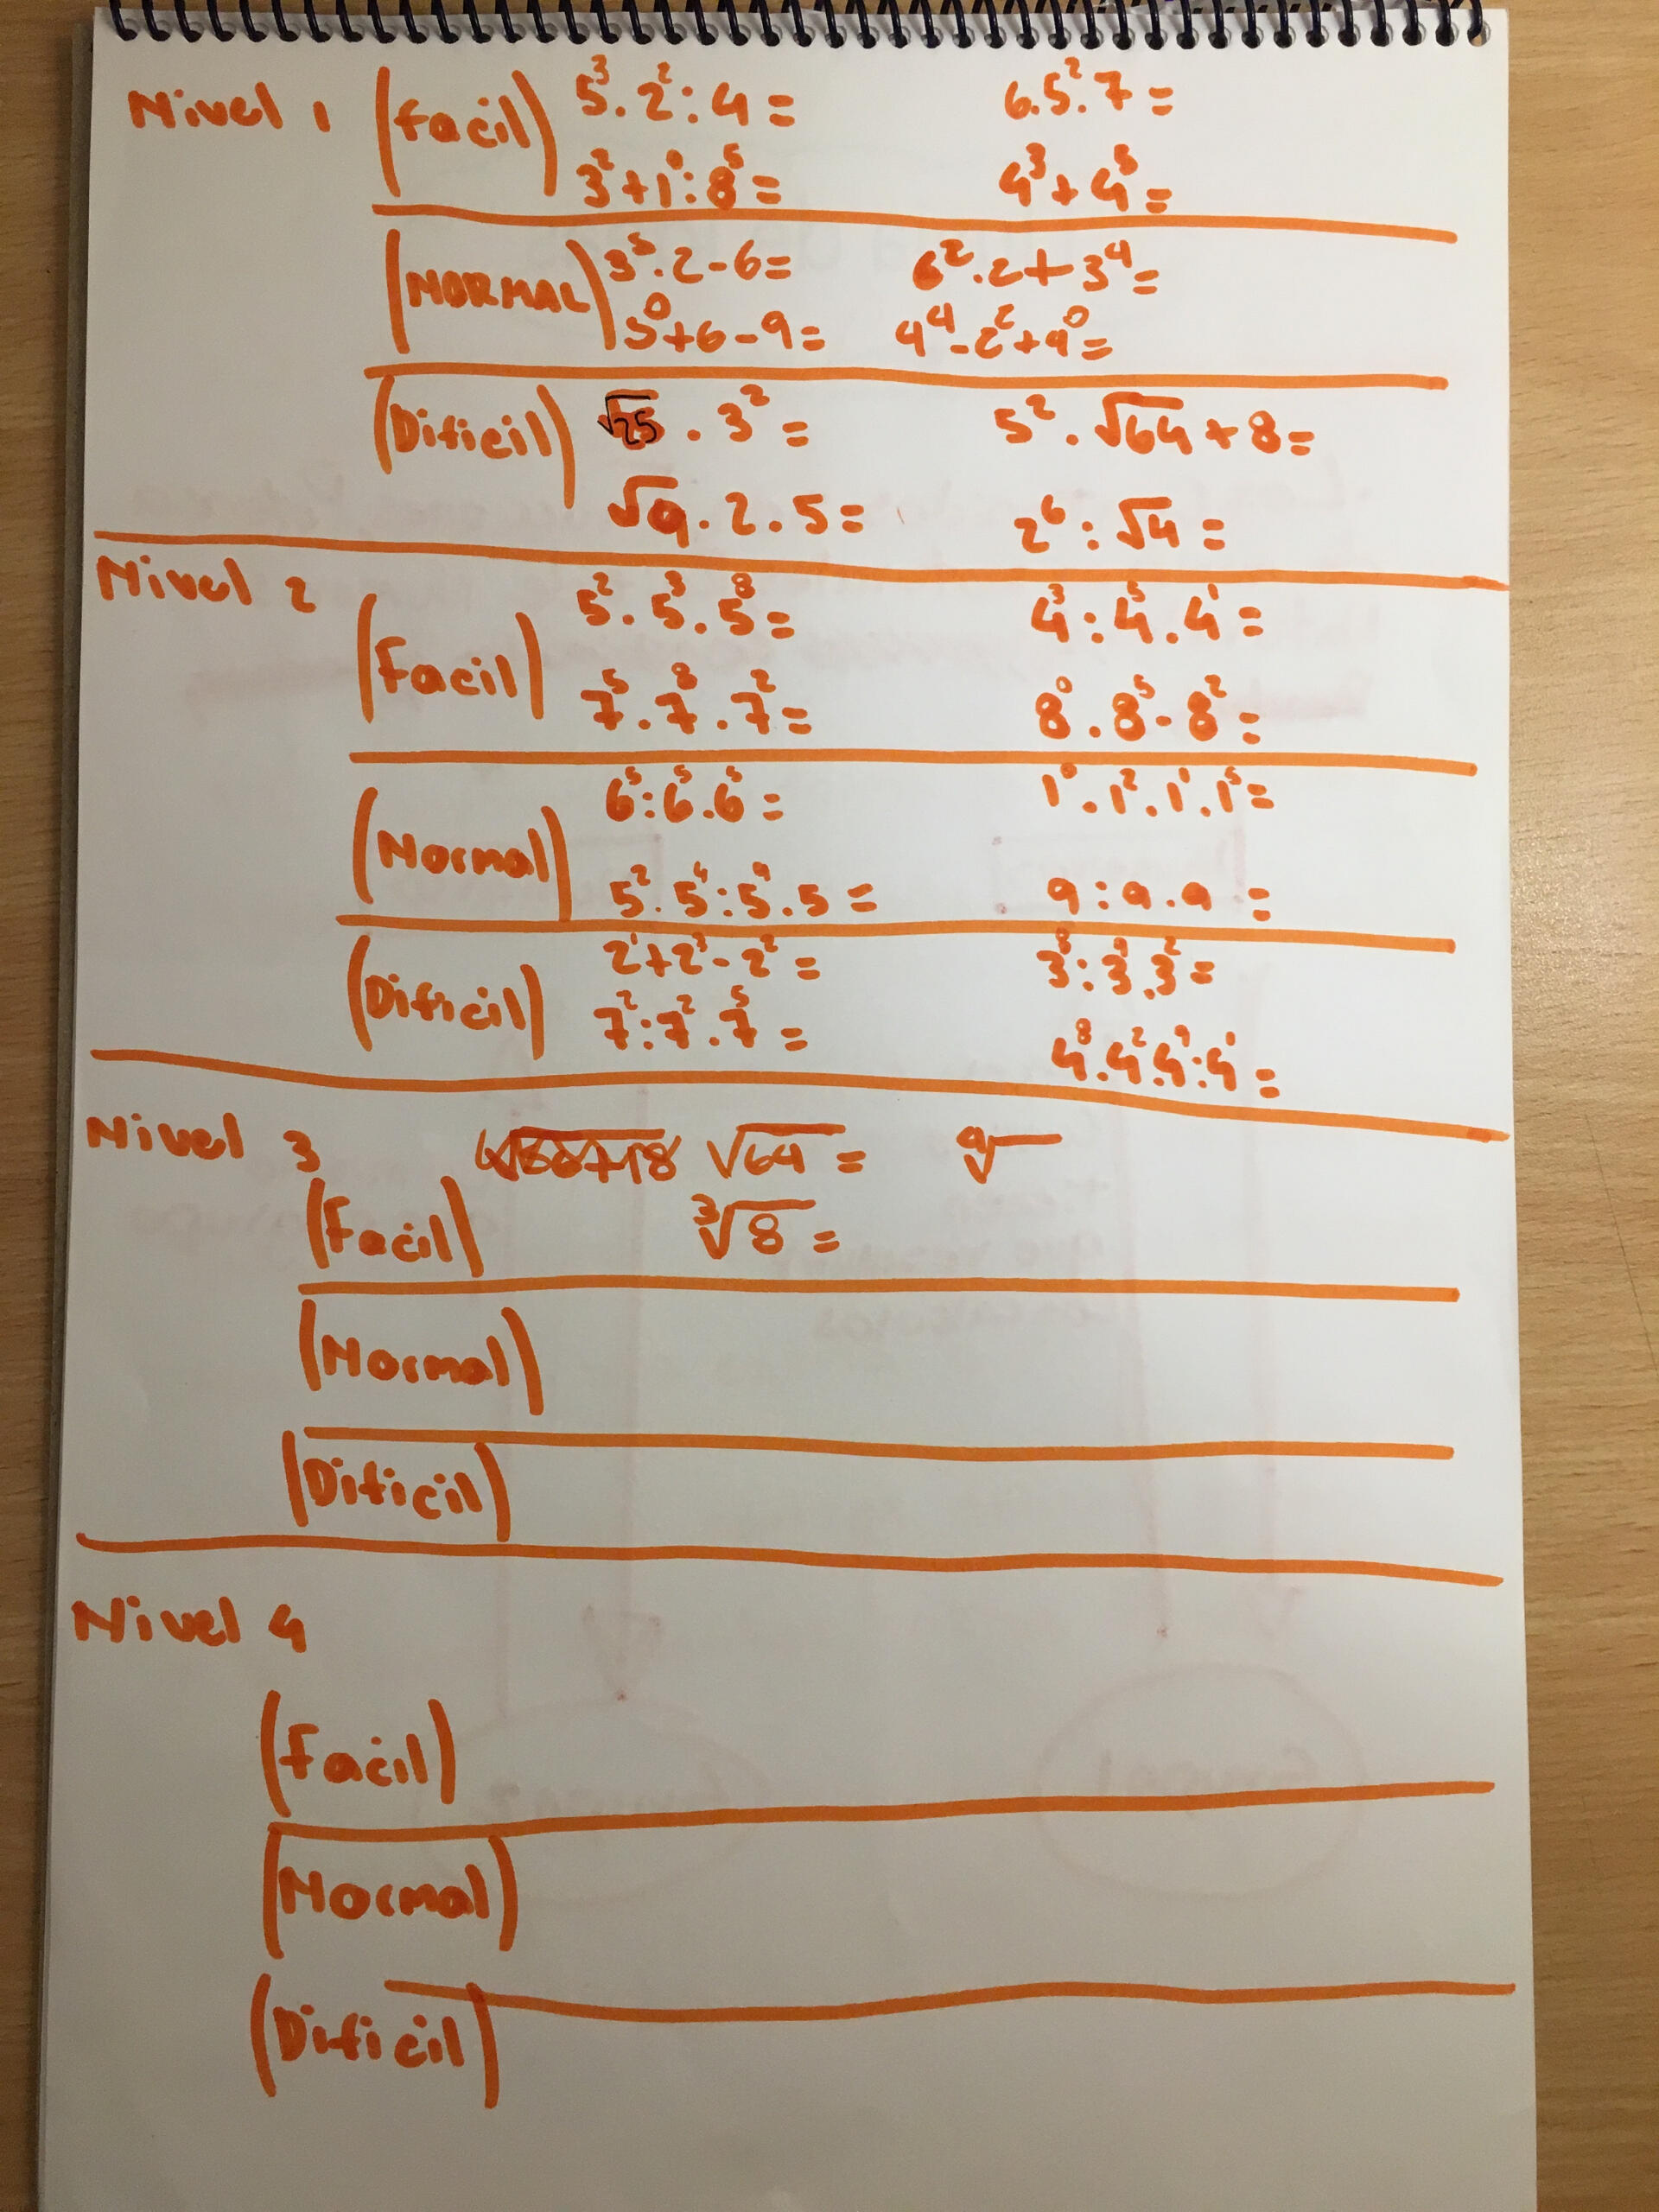 Nivel 1 (facil) 5³.2²:4= 6.5².7=
3²+1⁰:8⁵= 4³+4⁵=
(NORMAL) 3⁵.2-6= 6².2+3⁴=
5⁰+6-9= 4⁴-2²+9⁰=
(Dificil) √25 . 3² = 5².√64+8=
√9.2.5= 2⁶:√4=
Nivel 2
(Facil) 5².5³.5⁸= 4³:4⁵.4¹=
7⁵.7⁸.7²= 8⁰.8⁵-8²=
(Normal) 6⁵:6⁵.6⁵= 1⁰.1².1¹.1⁵=
5².5⁴:5⁹.5= 9:9.9=
(Dificil) 2¹+2³-2²= 3⁸:3⁹.3²=
7²:7².7⁵= 4⁸.4².4⁹:4¹=
Nivel 3 √64= ⁹√
(Facil) ³√8=
(Normal)
(Dificil)
Nivel 4
(facil)
(Normal)
(Dificil)